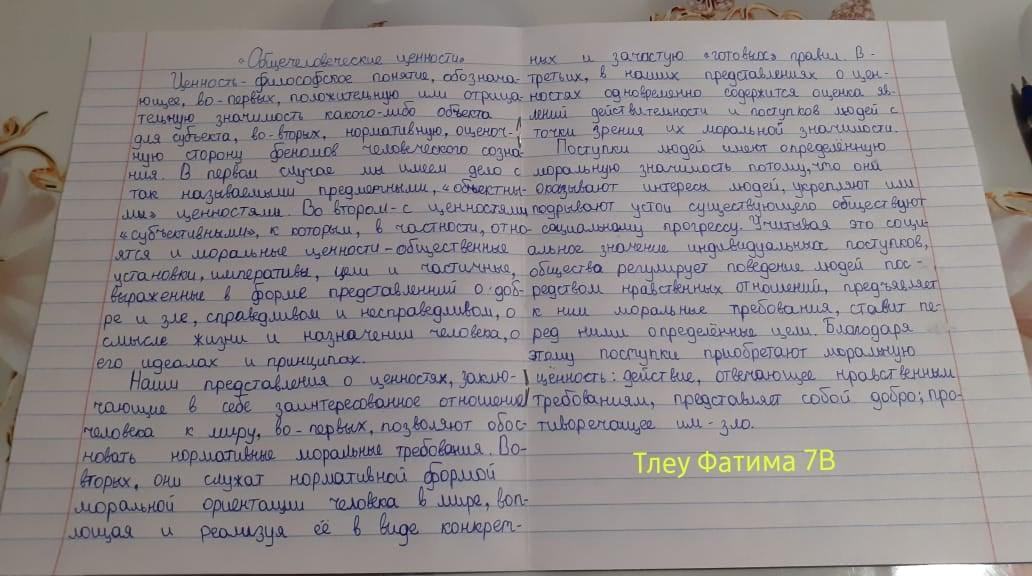 «Общечеловеческие ценности»
Ценность - философское понятие, обознача-
ющее, во-первых, положительную или отрица-
тельную значимость какого-либо объекта
для субъекта, во-вторых, нормативную, оценоч-
ную сторону феномов человеческого созна-
ния. В первом случае мы имеем дело с
так называемыми предметными, «объектны-
ми» ценностями. Во втором - с ценностями
«субъективными», к которым, в частности, отно-
ятся и моральные ценности - общественные
установки, императивы, цели и частичные,
выраженные в форме представлений о доб-
ре и зле, справедливом и несправедливом, о
смысле жизни и назначении человека, о
его идеалах и принципах.
Наши представления о ценностях, заклю-
чающие в себе заинтересованное отношение
человека к миру, во-первых, позволяют обос-
новать нормативные моральные требования. Во-
вторых, они служат нормативной формой
моральной ориентации человека в мире, воп-
лощая и реализуя её в виде конкрет-
них и зачастую «готовых» правил. В-
третьих, в наших представлениях о цен-
ностях одновременно содержится оценка яв-
лений действительности и поступков людей с
точки зрения их моральной значимости.
Поступки людей имеют определённую
моральную значимость потому, что они
оказывают интересы людей, укрепляют или
подрывают устои существующего обществуют
социальному прогрессу. Учитывая это соци-
альное значение индивидуальных поступков,
общества регулирует поведение людей пос-
редством нравственных отношений, предъявляет
к ним моральные требования, ставит пе-
ред ними определённые цели. Благодаря
этому поступки приобретают моральную
ценность: действие, отвечающее нравственным
требованиям, представляет собой добро; про-
тиворечащее им - зло.
Тлеу Фатима 7В